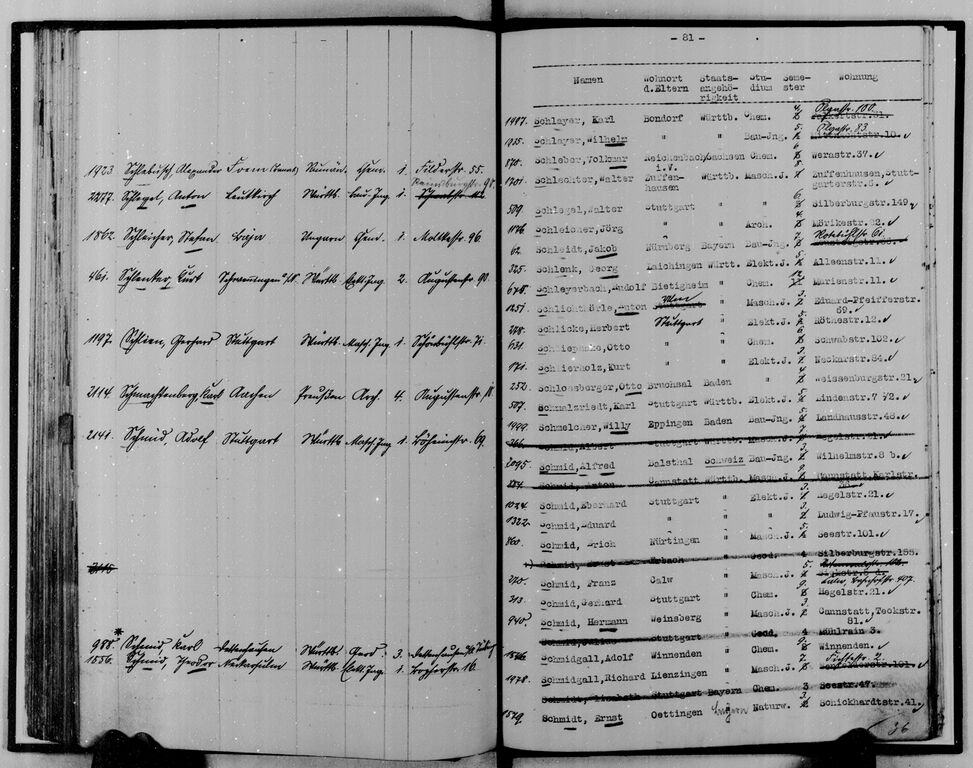 1903 Schlebusch, Alexander Rumän. Chem. 1. Filderstr. 55.
2277. Schlegel, Anton Leutkirch Württb. Bau-Ing. 1. Reinsburgstr. 90.
1862. Schleicher, Stefan Baja Ungarn Chem. 1. Moltkestr. 96.
461. Schlenker, Kurt Schwenningen a/N. Württb. Elekt. Ing. 2. Augustenstr. 90.
1197. Schlien, Gerhard Stuttgart Württb. Masch. Ing. 1. Schönbühlstr. 71.
2114. Schmachtenberg, Karl Aachen Preußen Arch. 4. Augustenstr. 18.
2141. Schmid, Adolf Stuttgart Württb. Masch. Ing. 1. Böheimstr. 69.
2115
988.* Schmid, Karl Dettenhausen Württb. Geod. 3. Dettenhausen
1556. Schmid, Theodor Neckarsulm Württb. Elekt. Ing. 1.
- 81 -
Namen Wohnort Staats- Stu- Seme- Wohnung
d.Eltern angehö- dium ster
rigkeit
4. Olgastr. 100.
1487. Schlayer, Karl Bondorf Württb. Chem.
5. Olgastr. 83.
1925. Schlayer, Wilhelm " " Bau-Jng.
6
870. Schleber, Volkmar Reichenbach Sachsen Chem. Werastr.37.
i.V.
5.
1701. Schlechter, Walter Zuffen- Württb. Masch.J. Zuffenhausen, Stutt-
hausen garterstr.5.
6.
509. Schlegel, Walter Stuttgart " " Silberburgstr.149
4.
1176 Schleicher, Jörg " " Arch. Mörikestr.22.
62. Schleidt, Jakob Nürnberg Bayern Bau-Jng. Rotebühlstr. 61.
5.
325. Schlenk, Georg Laichingen Württ. Elekt.J. Alleenstr.11.
12
678. Schleyerbach, Rudolf Bietigheim " Chem. Marienstr.11.
1251. Schlichthörle, Anton Ulm " Masch.J. Eduard-Pfeifferstr.
69.
5.
278. Schlicke, Herbert Stuttgart " Elekt.J. Röthestr.12.
6.
631. Schliephake, Otto " Chem. Schwabstr.102.
3.
1971. Schlierholz, Kurt " " Elekt.J. Neckarstr.84.
4
252. Schlossberger, Otto Bruchsal Baden " Weissenburgstr.21.
507. Schmalzriedt, Karl Stuttgart Württb. Elekt.J. Lindenstr.7 ½.
1499. Schmelcher, Willy Eppingen Baden Bau-Jng. Landhausstr.48.
266. Schmid, Albert Stuttgart Württb. Masch.J. Hegelstr.21.
2095. Schmid, Alfred Balsthal Schweiz Bau-Jng. Wilhelmstr.8 b.
9.
Schmid, Anton Cannstatt Württb. Masch.J. Cannstatt, Karlstr.
3.
1024. Schmid, Eberhard Stuttgart " Elekt.J. Hegelstr.21.
3.
1322. Schmid, Eduard " " " Ludwig-Pfaustr.17.
5.
860. Schmid, Erich Nürtingen " Masch.J. Seestr.101.
Schmid, Ernst Urbach " Geod. 4 Silberburgstr.155.
5.
270. Schmid, Franz Calw " Masch.J.
9.
213. Schmid, Gerhard Stuttgart " Chem. Hegelstr.21.
3.
940. Schmid, Hermann Weinsberg " Masch.J. Cannstatt, Teckstr.
81.
Schmid, Julius Stuttgart " Geod. 4 Mühlrain 3.
9.
1566. Schmidgall, Adolf Winnenden " Chem. Winnenden.
7. Fichtestr. 2.
1478. Schmidgall, Richard Lienzingen " Masch.J.
Schmidt, Elsbeth Stuttgart Bayern Chem. 3 Seestr.47.
1579. Schmidt, Ernst Oettingen Bayern Naturw. Schickhardtstr.41.
36